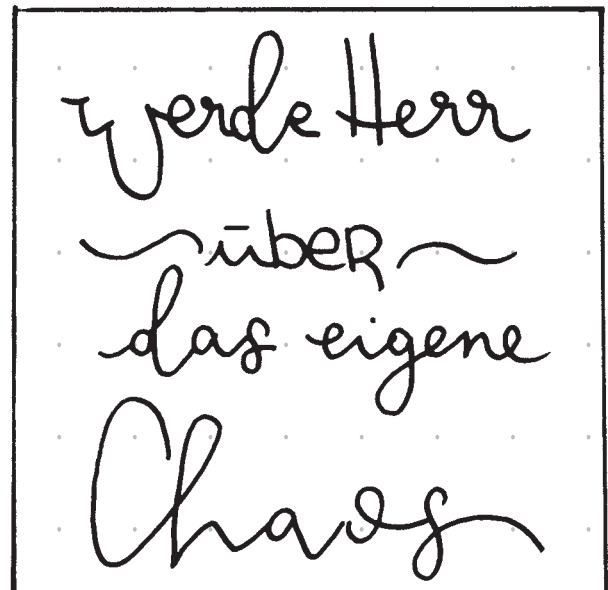 werde Herr
~ über ~
das eigene
Chaos